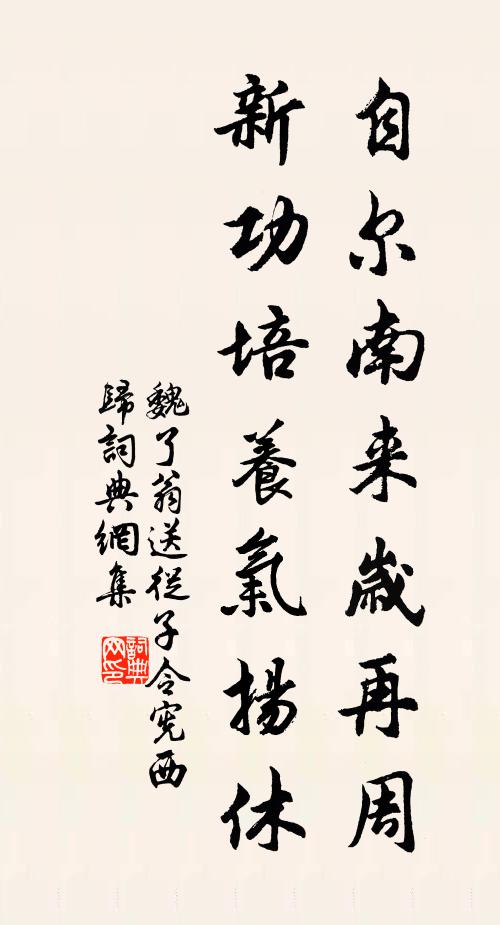 自尔南来歲再周
新功培養氣揚休
魏了翁送從子令宪西
歸詞典網集
詞典
网印